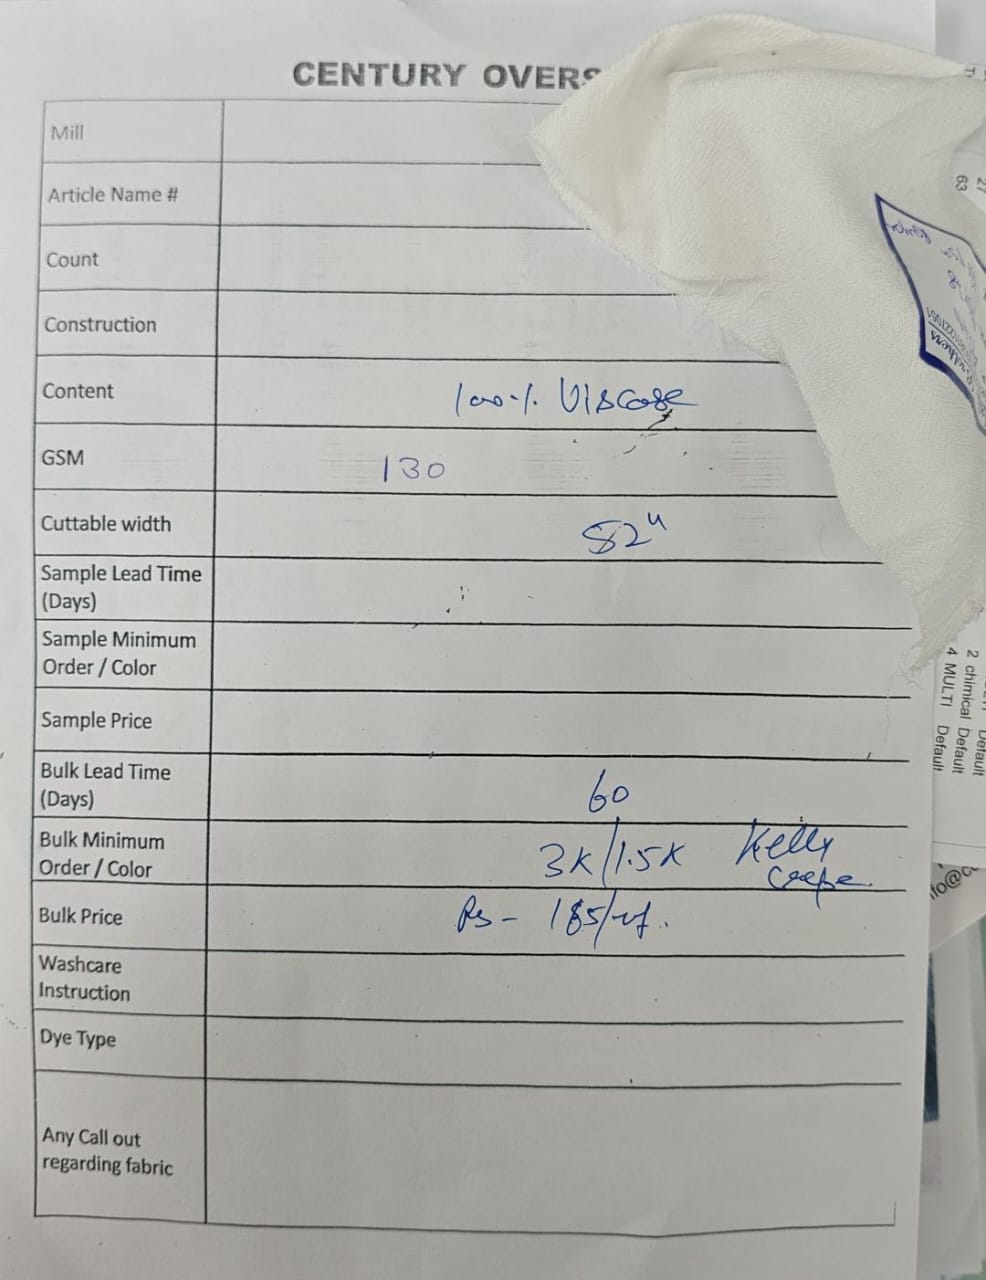 CENTURY OVERS
Mill
Article Name #
Count
Construction
Content 100% Viscose
GSM 130
Cuttable width 52"
Sample Lead Time
(Days)
Sample Minimum
Order / Color
Sample Price
Bulk Lead Time
(Days) 60
Bulk Minimum
Order / Color 3K/1.5K Kelly
Crepe.
Bulk Price Rs - 185/
Washcare
Instruction
Dye Type
Any Call out
regarding fabric
27
63
Brothers
Default
2 chimical Default
4 MULTI Default